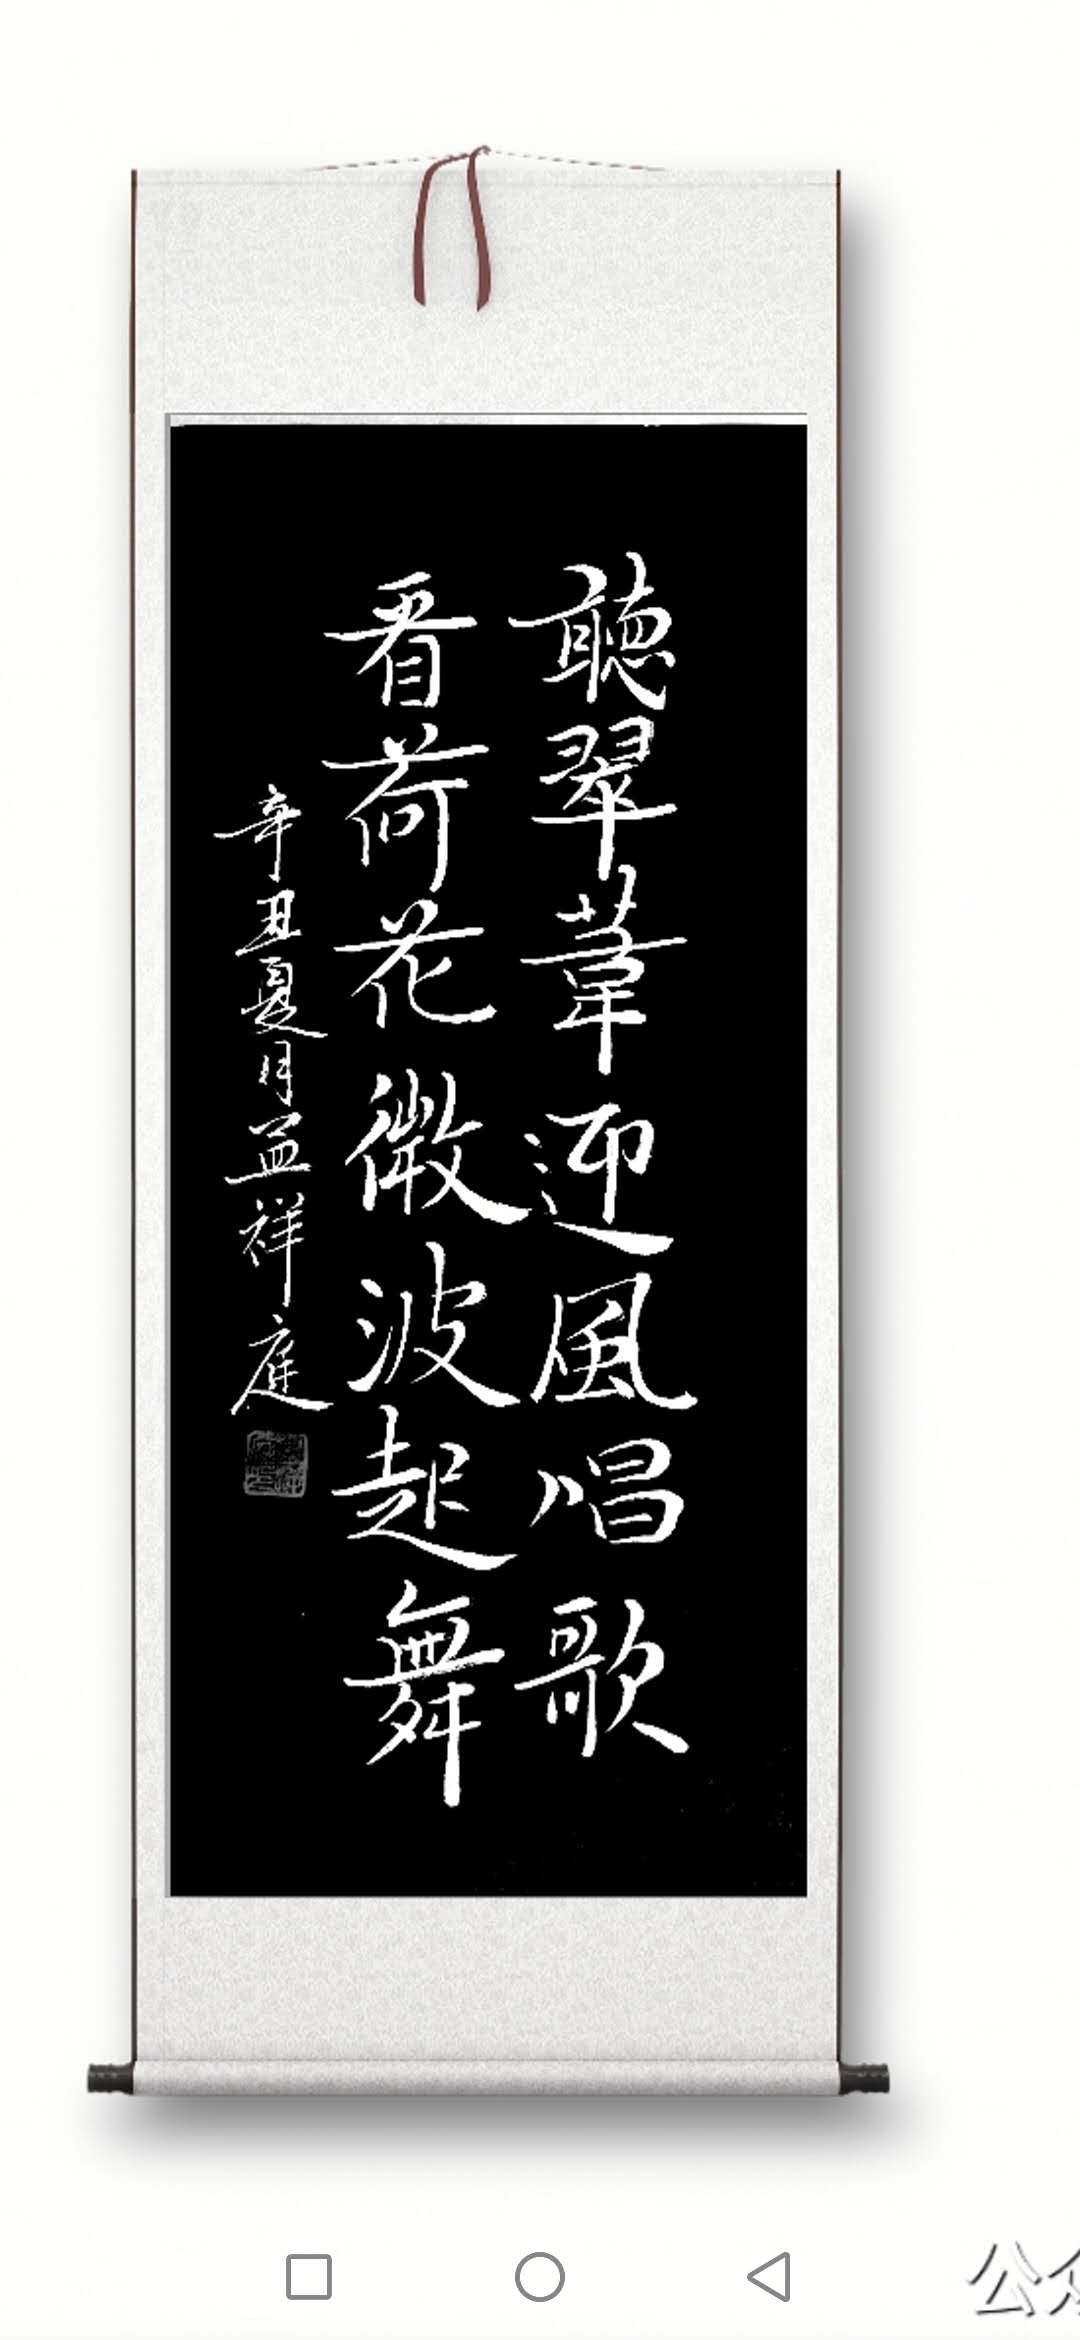 聽翠葦迎風唱歌
看荷花微波起舞
辛丑夏月益祥庭
公众